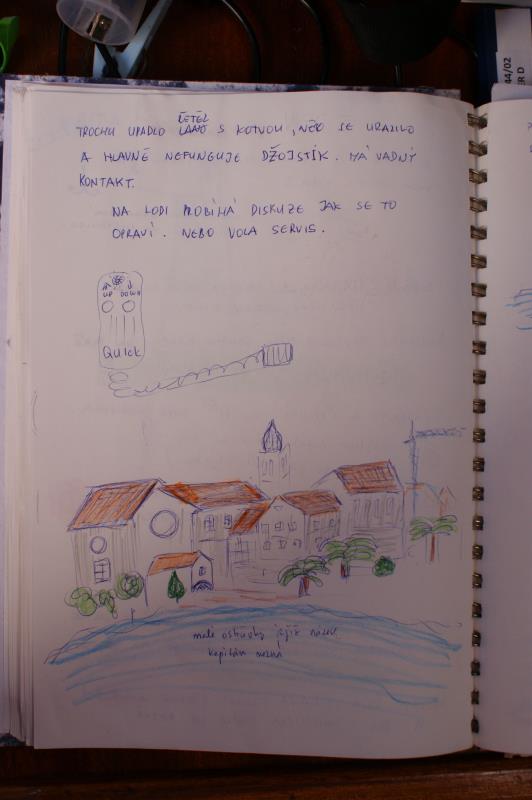 ŘETĚZ
TROCHU UPADLO LANO S KOTVOU, NĚCO SE URAZILO
A HLAVNĚ NEFUNGUJE DŽOJSTÍK. MÁ VADNÝ
KONTAKT.
NA LODI PROBÍHÁ DISKUZE JAK SE TO
OPRAVÍ. NEBO VOLA SERVIS.
UP DOWN
Quick
malé ostrůvky jejíž název
kapitán nezná
44/02
ER D